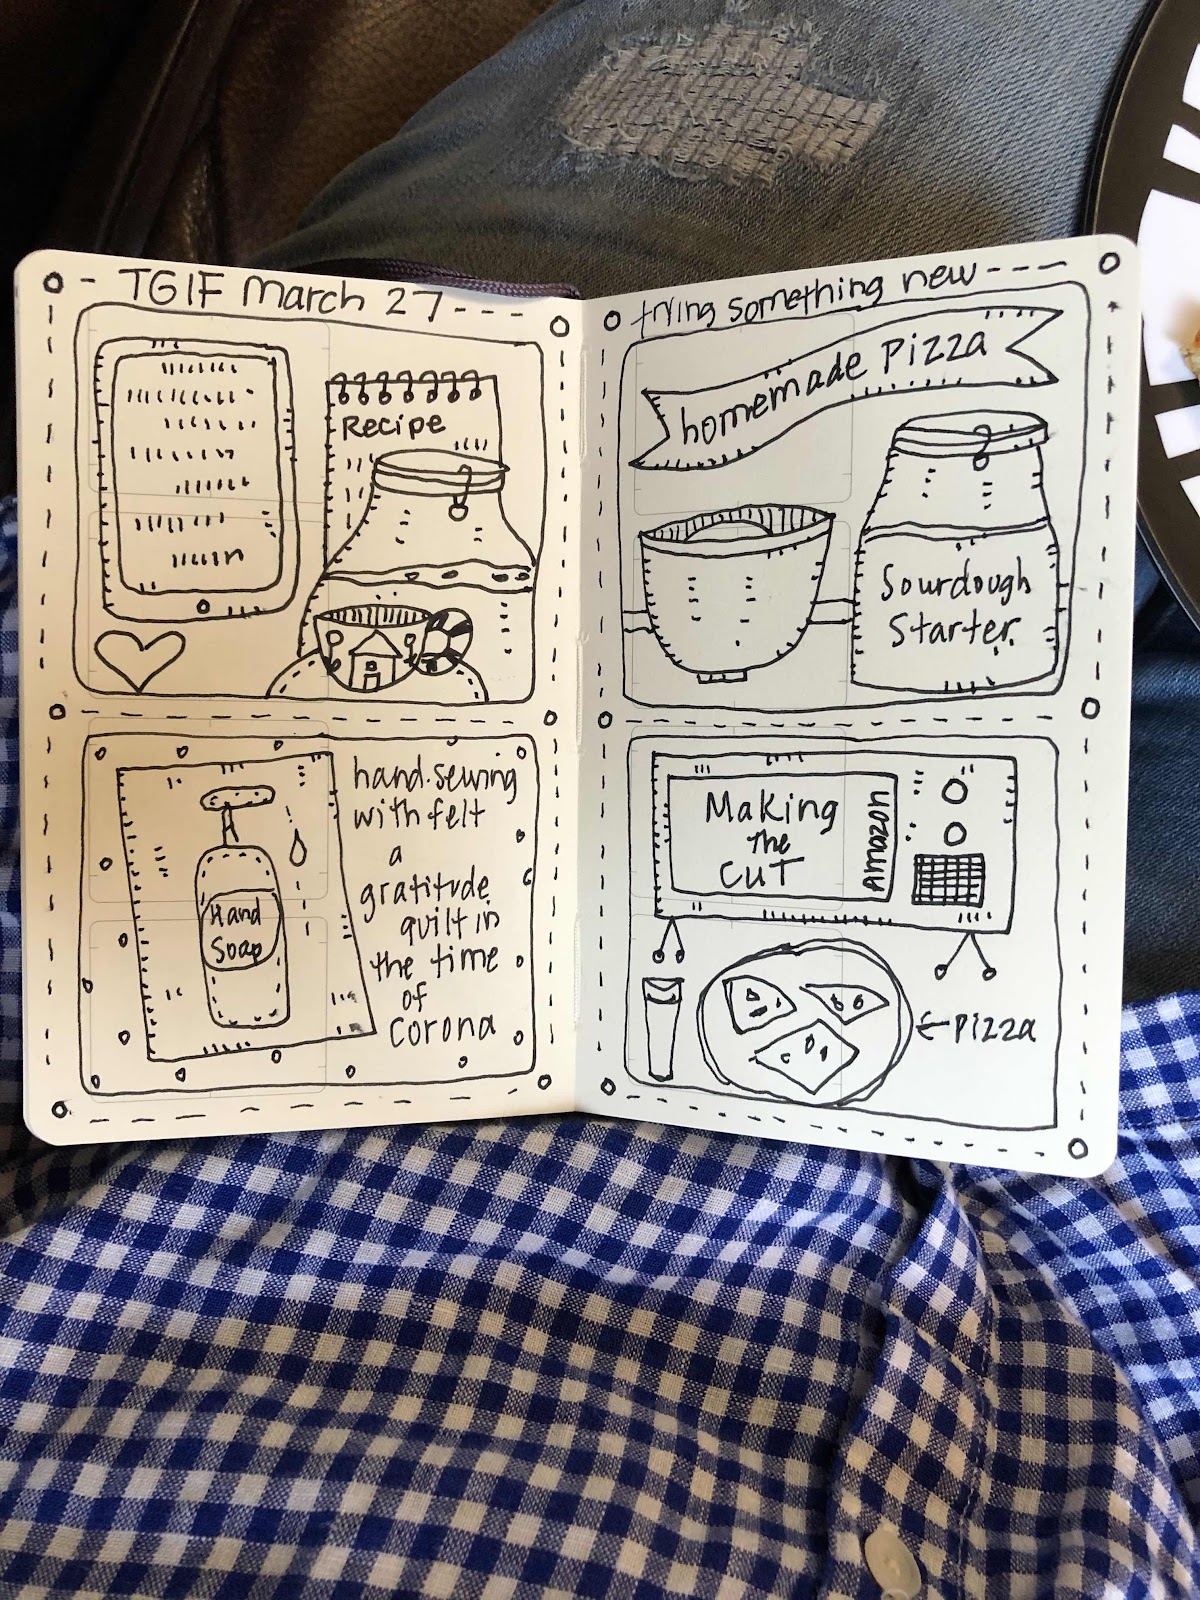 TGIF march 27
Recipe
Hand
Soap
hand-sewing
with felt
a
gratitude
quilt in
the time
of
corona
trying something new
homemade Pizza
Sourdough
Starter.
Making
the
CUT
Amazon
← Pizza